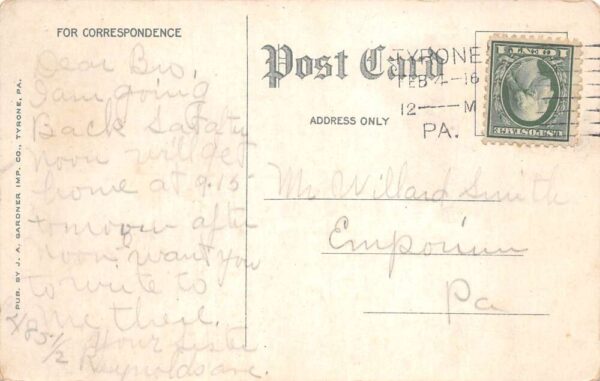 FOR CORRESPONDENCE
Post Card
ADDRESS ONLY
TYRONE
FEB 4-16
12 — M
PA.
1 CENT 1
U.S. POSTAGE
PUB. BY J. A. GARDNER IMP. CO., TYRONE, PA.
Dear Bro,
I am going
Back Satatu
noon will get
home at 9.15
tomorow after
noon want you
to write to
me their.
Your Sister
285 1/2
Reynolds ave.
Mr Willard Smith
Emporium
Pa